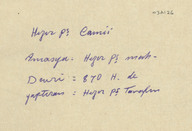 Hızır Pş Camii
Amasya: Hızır Pş mah.
Devri: 870 H. de
yaptıran: Hızır Pş Tarafın